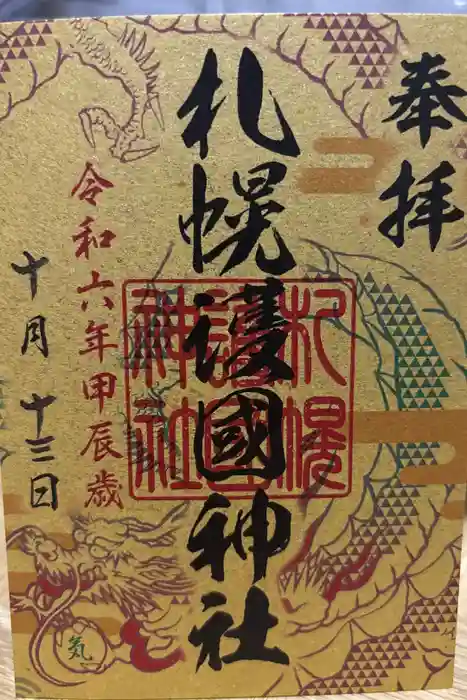 奉拝
札幌護國神社
札幌
護國
神社
令和六年甲辰歳
十月十三日
気